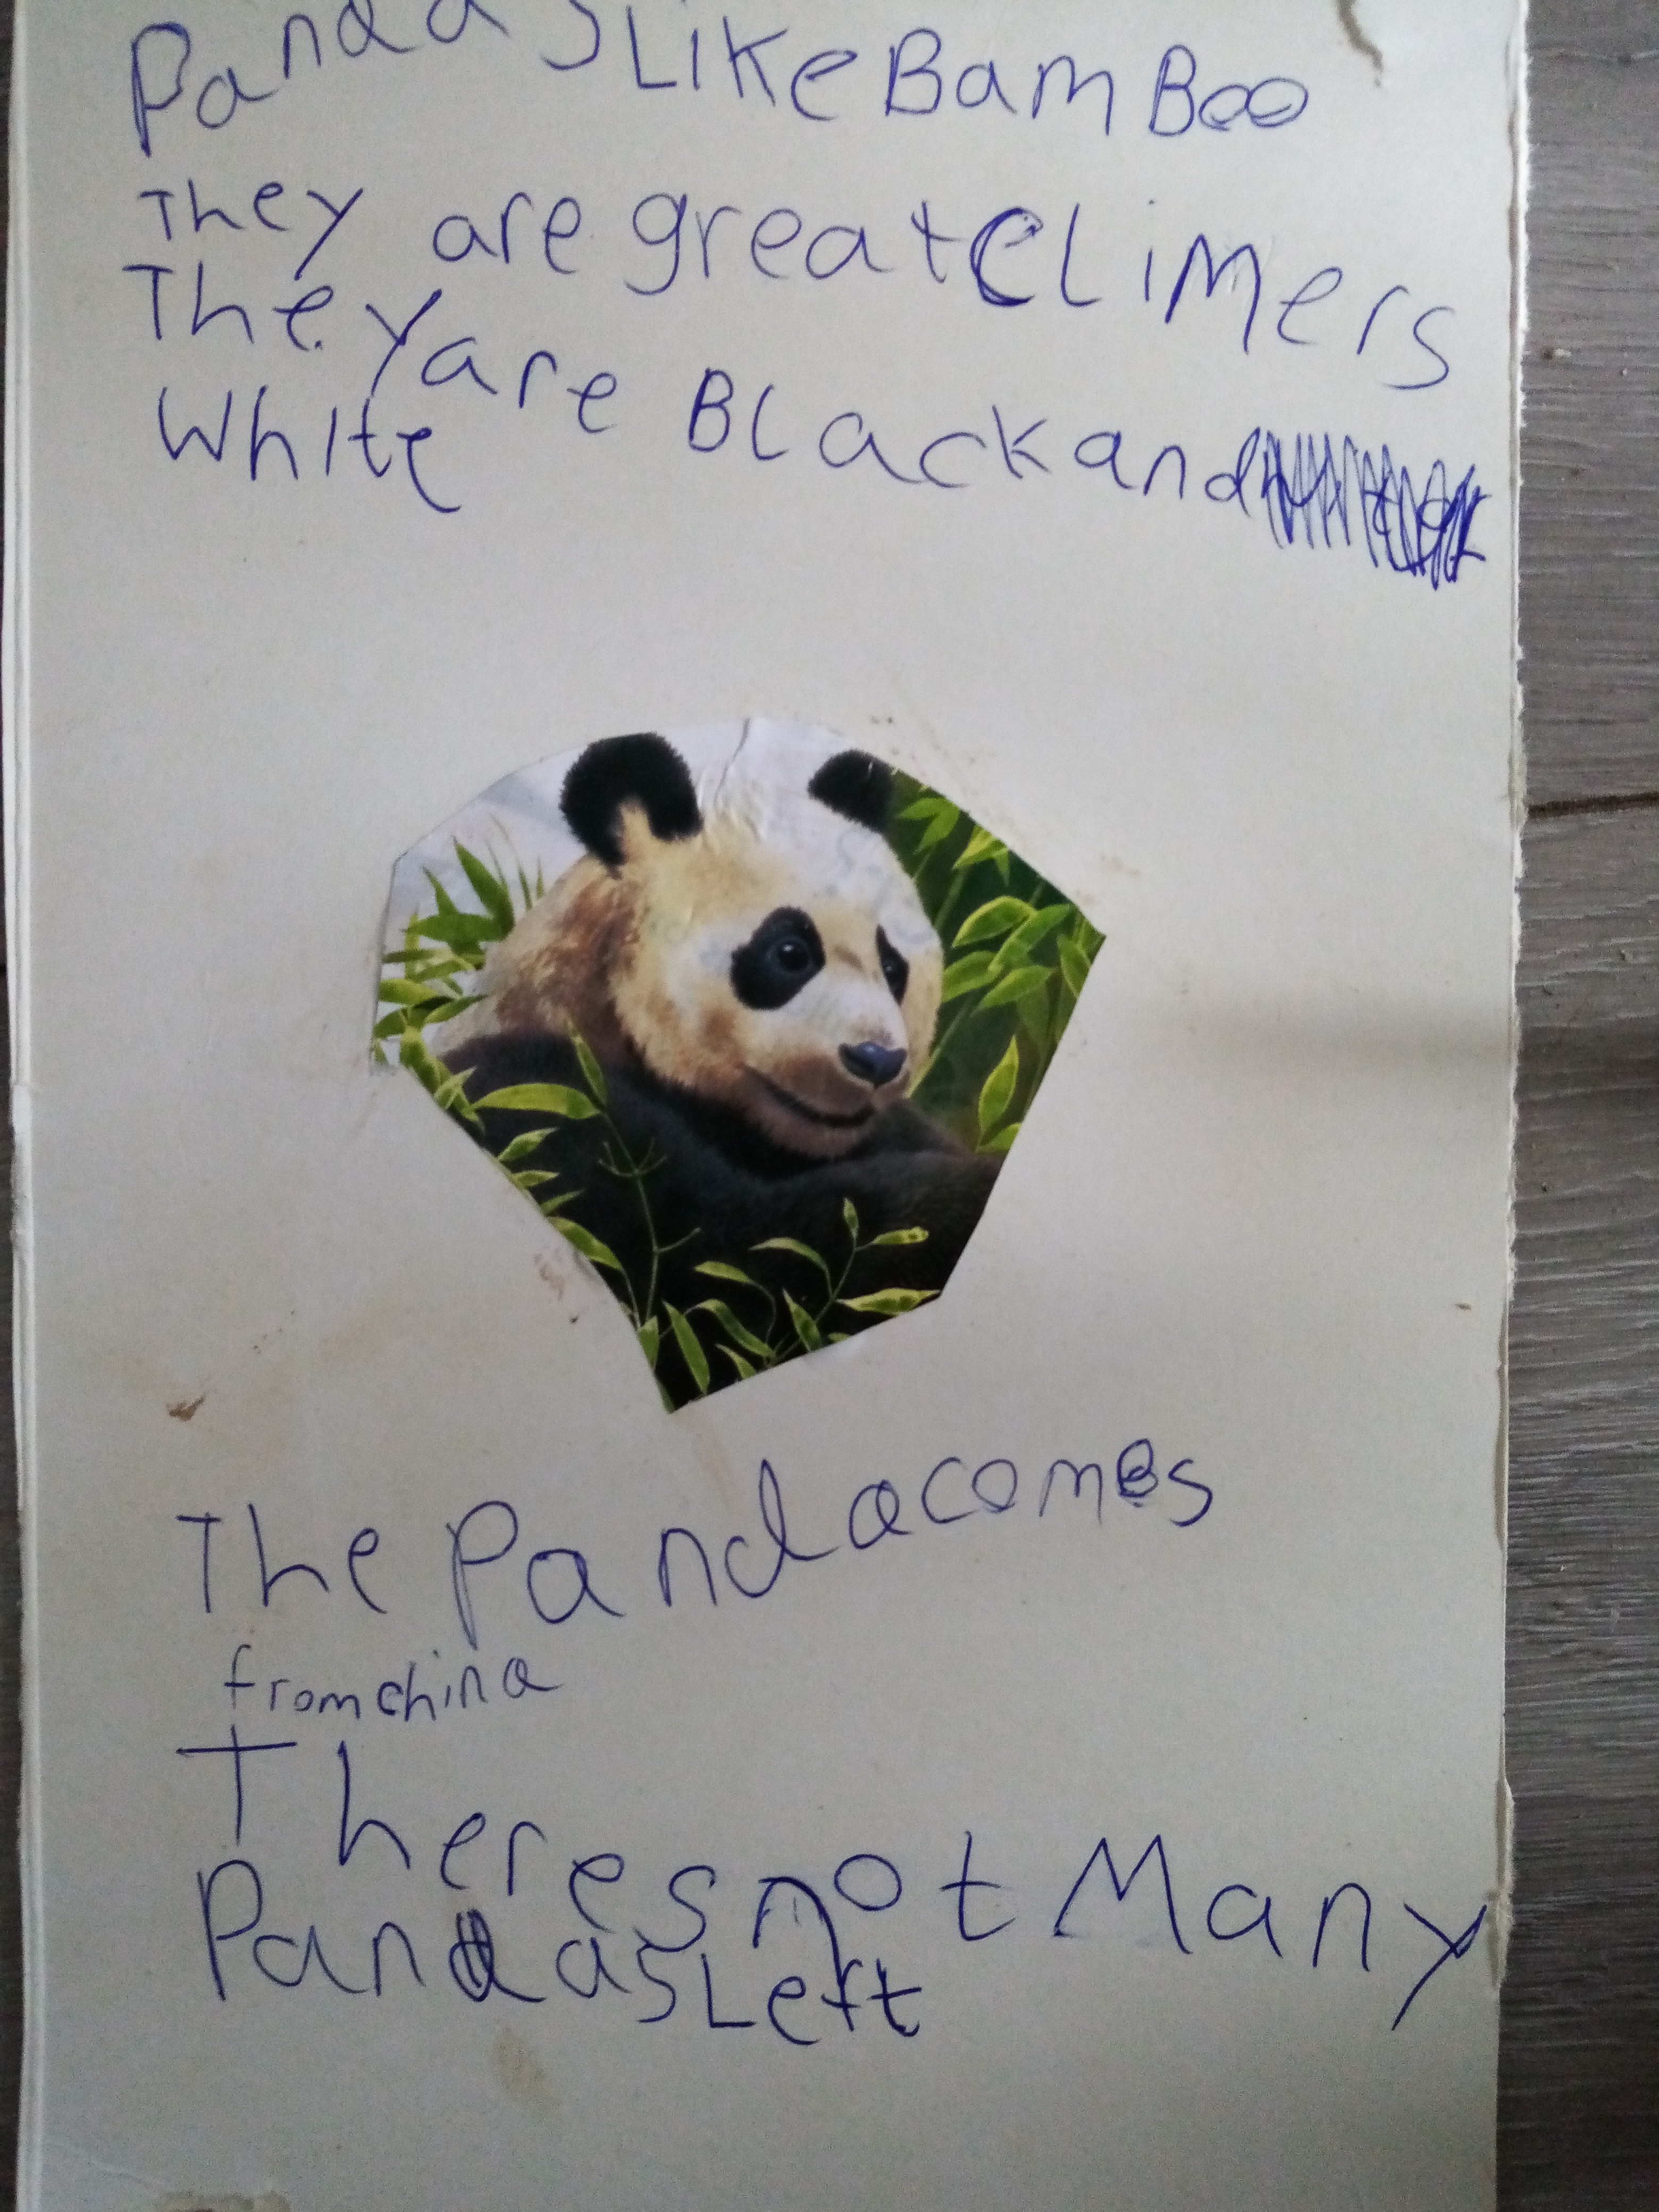 Pandas Like BamBoo
They are great CLiMers
They are BLack and
White
The Panda comes
from china
Theres not Many
Pandas Left